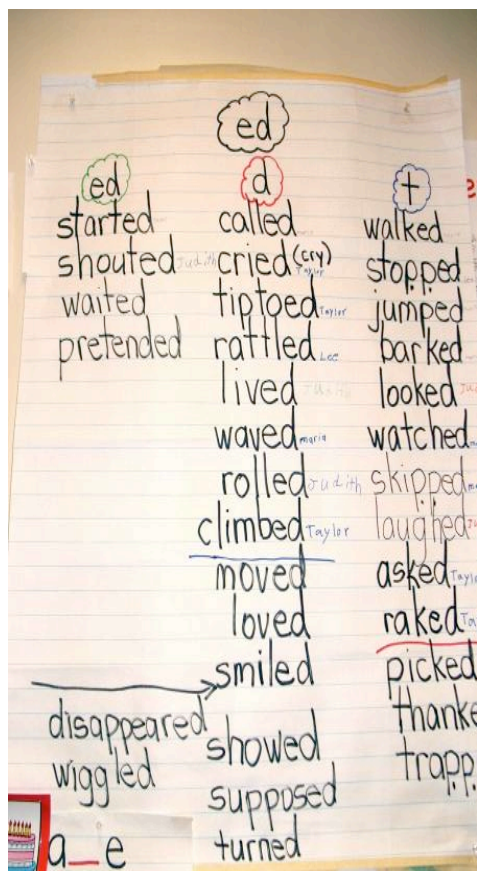 ed
ed
started
shouted Judith
waited
pretended
disappeared
wiggled
d
called
cried (cry)
Taylor
tiptoed Taylor
rattled Lee
lived Judith
waved maria
rolled Judith
climbed Taylor
moved
loved
smiled
showed
supposed
turned
t
walked
stopped
jumped
barked
looked Ju
watched
skipped
laughed
asked Taylo
raked Ta
picked
thanke
trapp
a_e